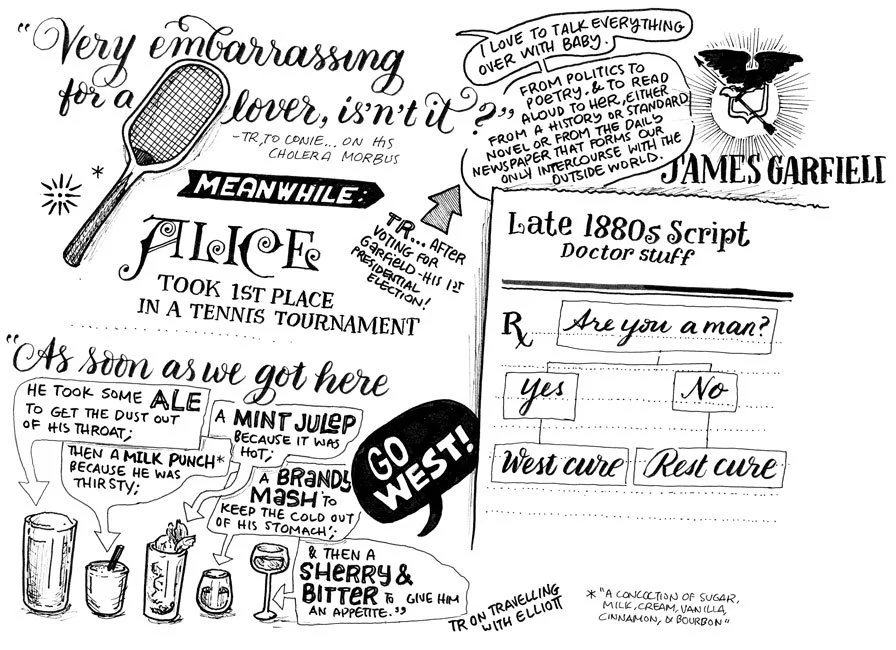 “Very embarrassing
for a lover, isn't it?”
-TR, TO CONIE... ON HIS
CHOLERA MORBUS
MEANWHILE:
ALICE
TOOK 1ST PLACE
IN A TENNIS TOURNAMENT
I LOVE TO TALK EVERYTHING
OVER WITH BABY.
FROM POLITICS TO
POETRY. & TO READ
ALOUD TO HER, EITHER
FROM A HISTORY OR STANDARD
NOVEL OR FROM THE DAILY
NEWSPAPER THAT FORMS OUR
ONLY INTERCOURSE WITH THE
OUTSIDE WORLD.
TR... AFTER
VOTING FOR
GARFIELD - HIS 1ST
PRESIDENTIAL
ELECTION!
JAMES GARFIELD
Late 1880s Script
Doctor stuff
Rx
Are you a man?
Yes
No
West cure
Rest cure
“As soon as we got here
HE TOOK SOME ALE
TO GET THE DUST OUT
OF HIS THROAT;
THEN A MILK PUNCH*
BECAUSE HE WAS
THIRSTY;
A MINT JULEP
BECAUSE IT WAS
HOT;
A BRANDY
MASH TO
KEEP THE COLD OUT
OF HIS STOMACH';
& THEN A
SHERRY &
BITTER TO GIVE HIM
AN APPETITE.”
GO
WEST!
TR ON TRAVELLING
WITH ELLIOTT
* "A CONCOCTION OF SUGAR,
MILK, CREAM, VANILLA,
CINNAMON, & BOURBON"